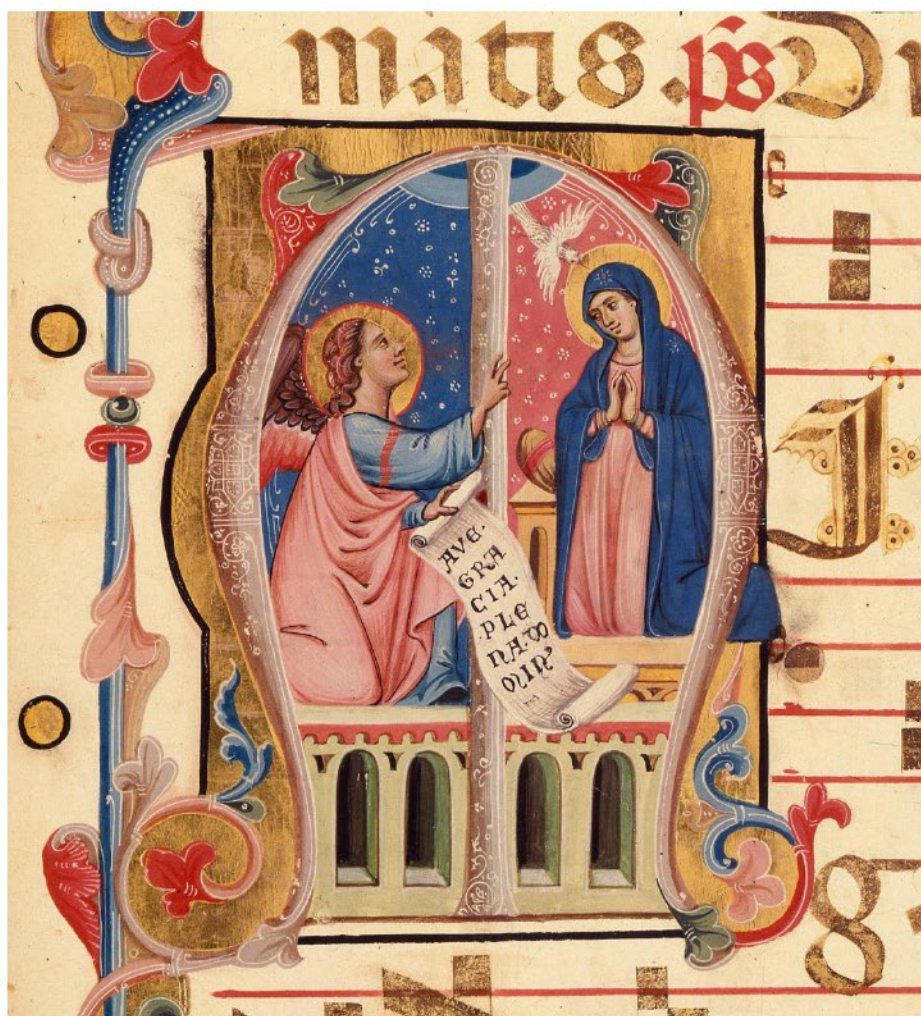 matis. ps D
AVE·
GRA
CIA·
·PLE
NA·D
OMIN'
g